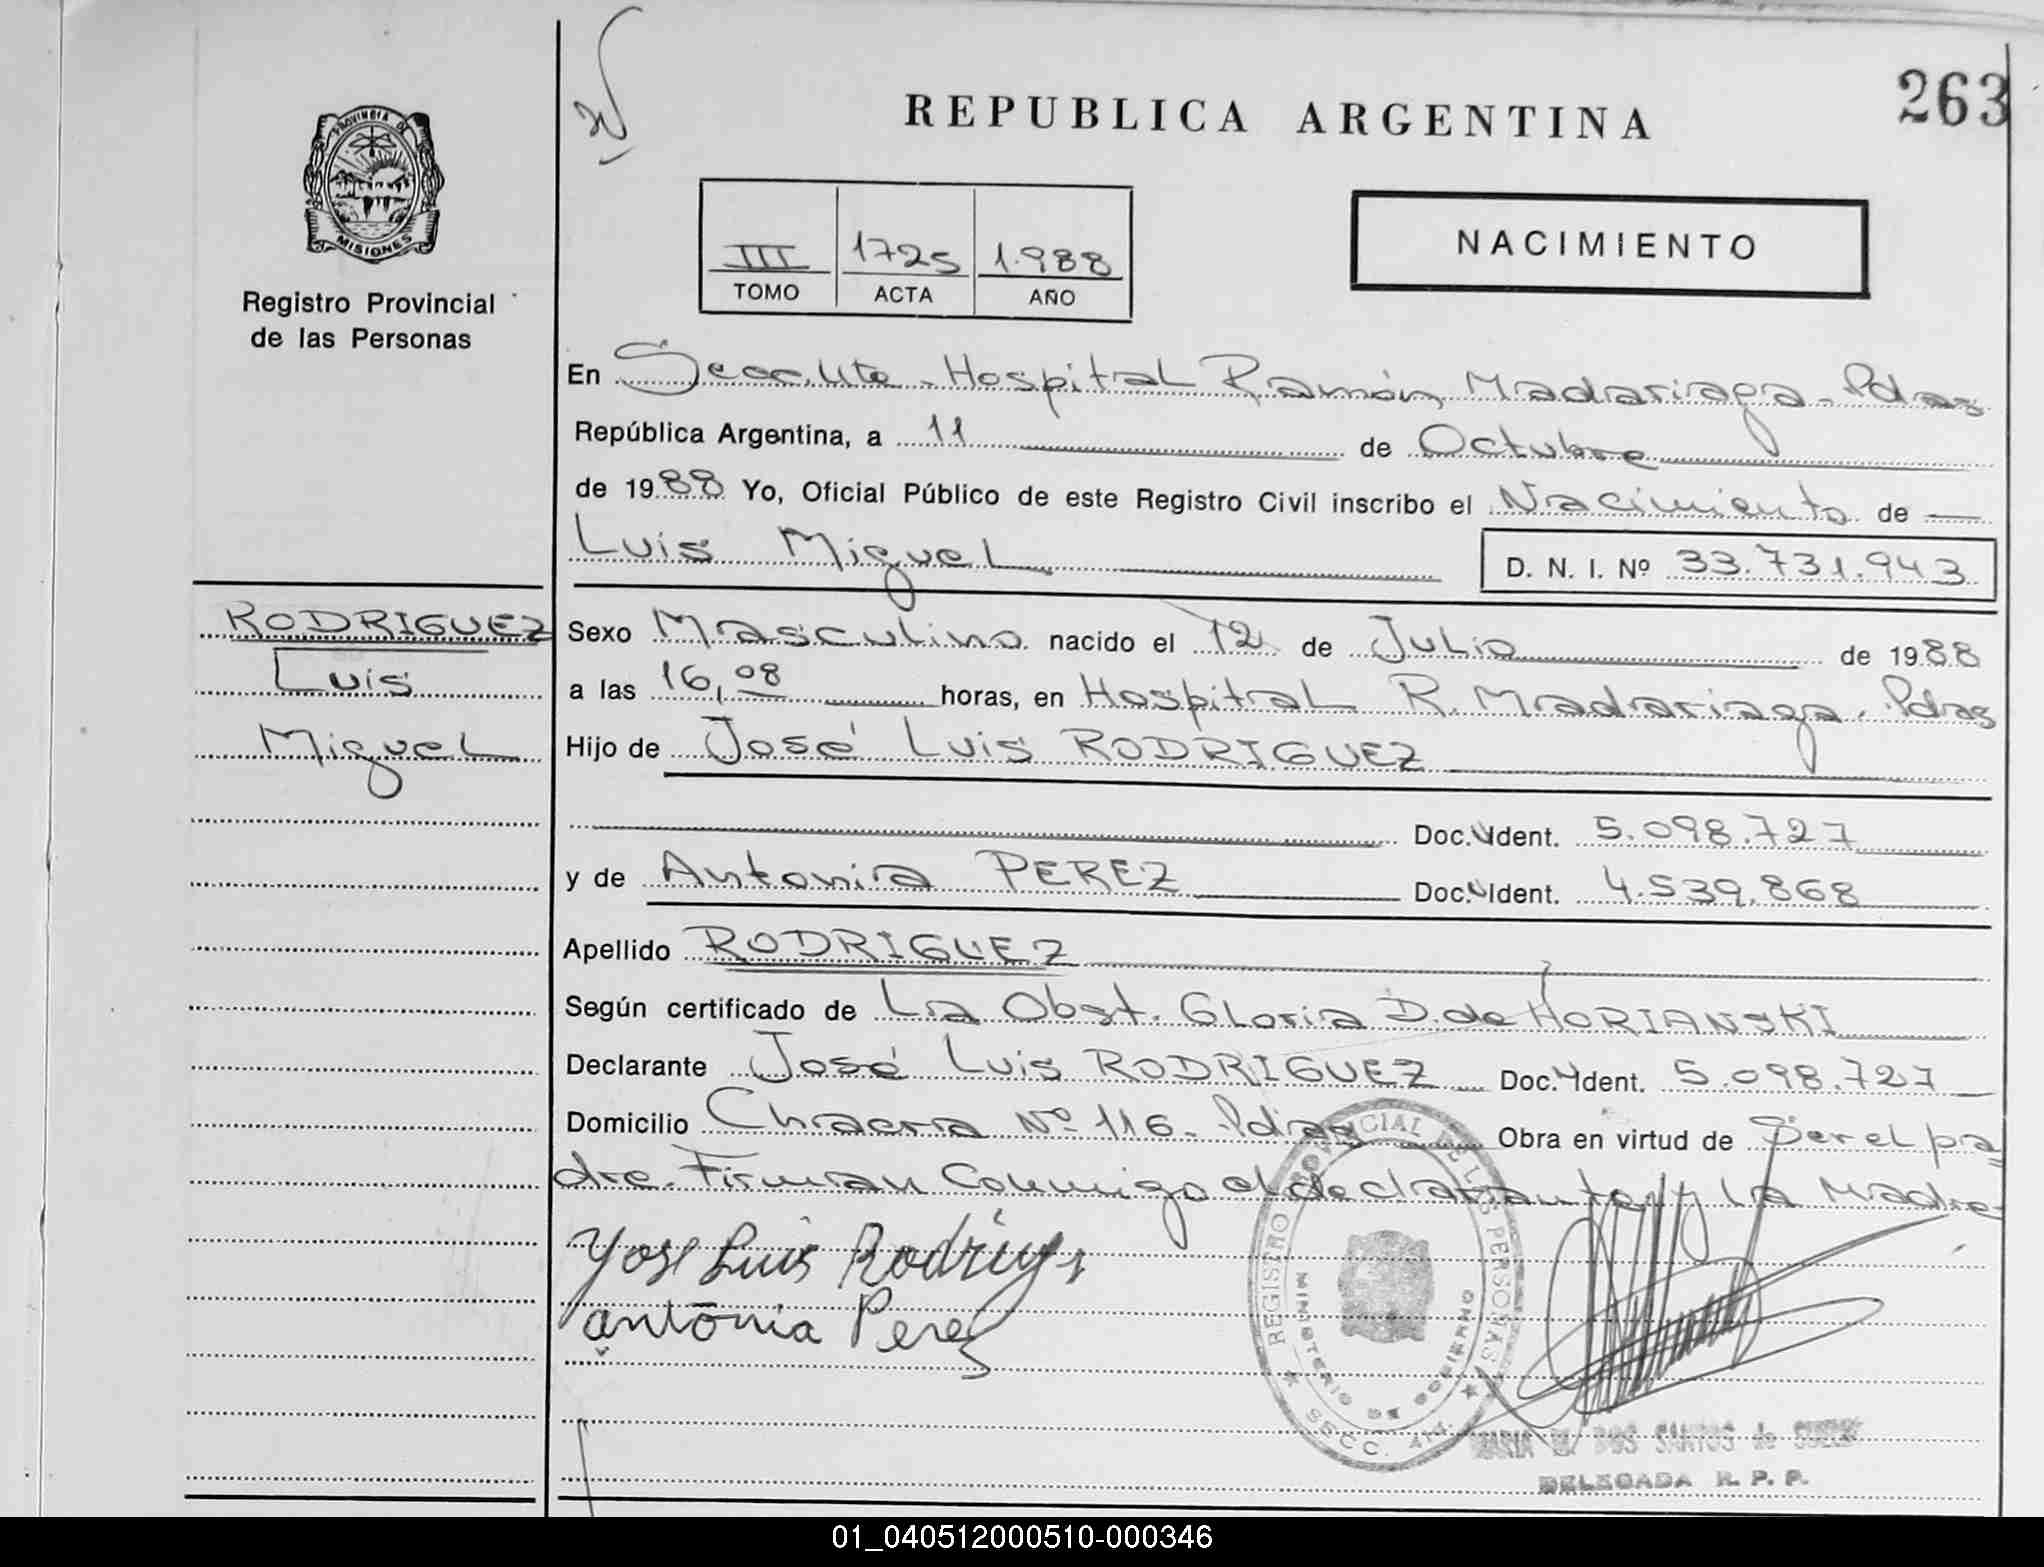 263
REPUBLICA ARGENTINA
PROVINCIA DE
MISIONES
Registro Provincial
de las Personas
III 1725 1.988
TOMO ACTA AÑO
NACIMIENTO
En Secc. Hospital Ramón Madariaga - Pdas
República Argentina, a 11 de Octubre
de 1988 Yo, Oficial Público de este Registro Civil inscribo el Nacimiento de
Luis Miguel D. N. I. Nº 33.731.943
RODRIGUEZ
Luis
Miguel
Sexo Masculino nacido el 12 de Julio de 1988
a las 16,08 horas, en Hospital R. Madariaga. Pdas
Hijo de José Luis RODRIGUEZ
Doc. Ident. 5.098.727
y de Antonia PEREZ Doc. Ident. 4.539.868
Apellido RODRIGUEZ
Según certificado de La Obst. Gloria D. de HORIANSKI
Declarante José Luis RODRIGUEZ Doc. Ident. 5.098.727
Domicilio Chacra Nº 116. Pdas Obra en virtud de Ser el pa
dre. Firman Conmigo el declarante y La Madre
Yose Luis Rodrigs
antōnia Perez
REGISTRO PROVINCIAL DE LAS PERSONAS
MINISTERIO DE GOBIERNO
MARIA DOS SANTOS de
DELEGADA R. P. P.
01_040512000510-000346